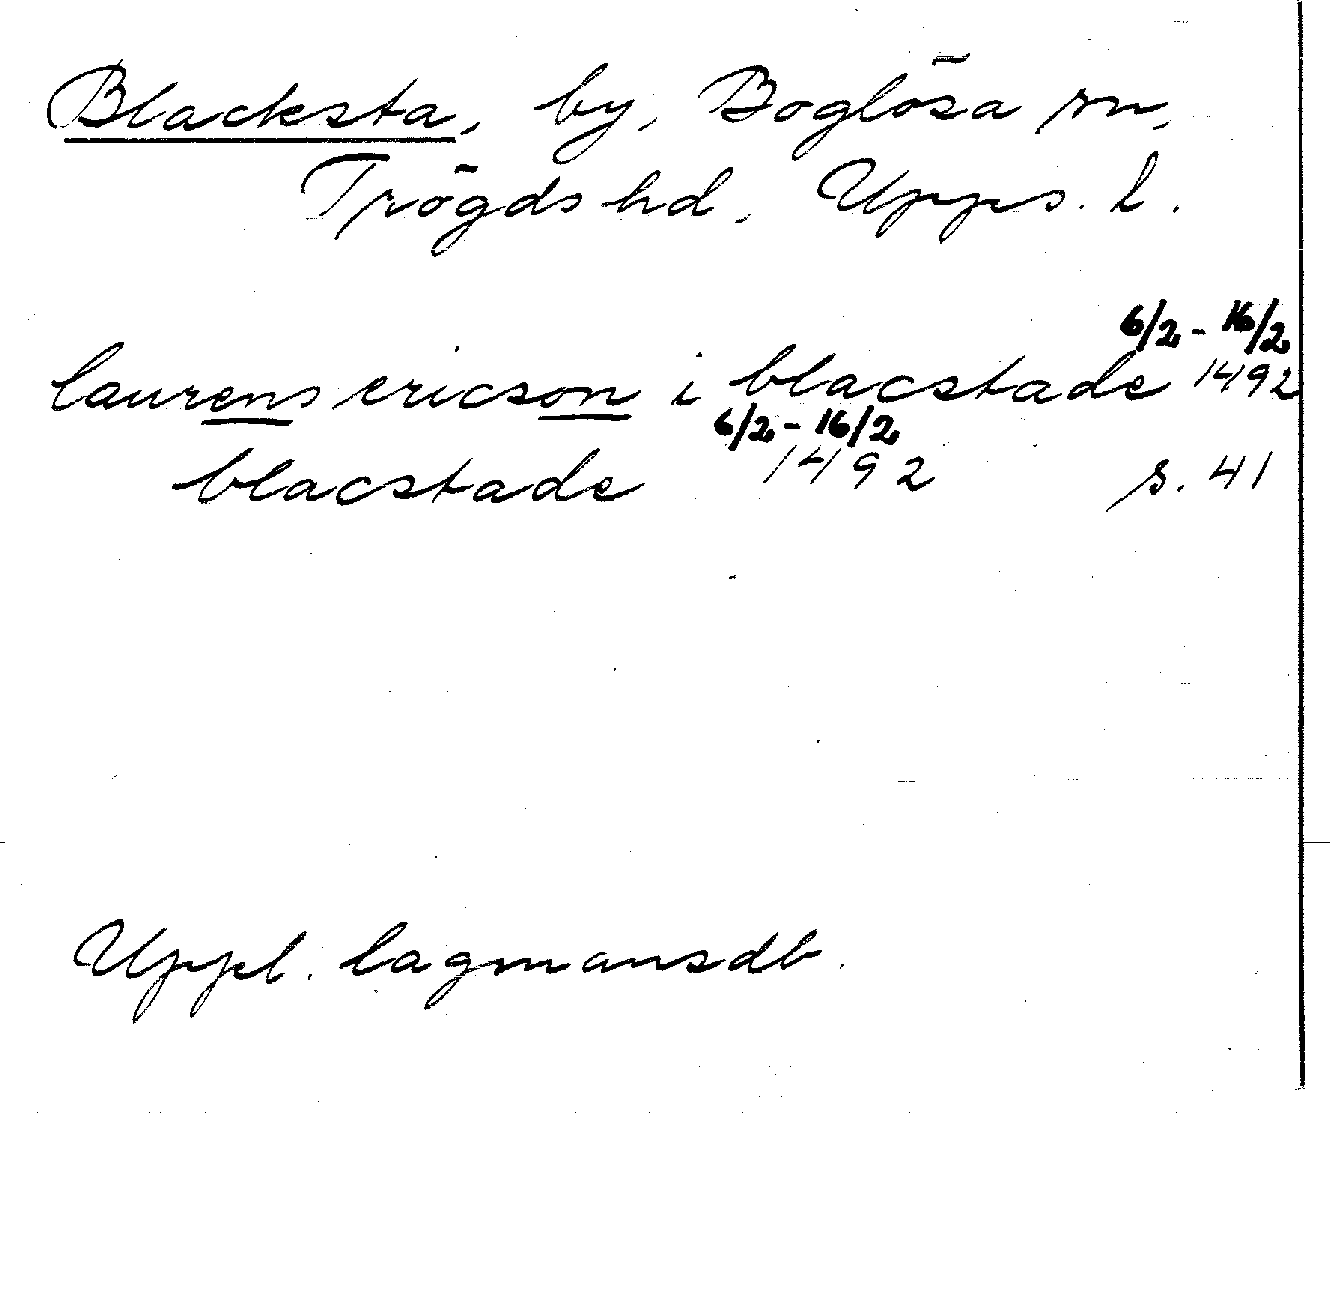 Blacksta, by, Boglösa sn,
Trögds hd, Upps. l.
6/2 - 16/2
laurens ericson i blacstade 1492
6/2 - 16/2
blacstade 1492 s. 41
Uppl. lagmansdb.